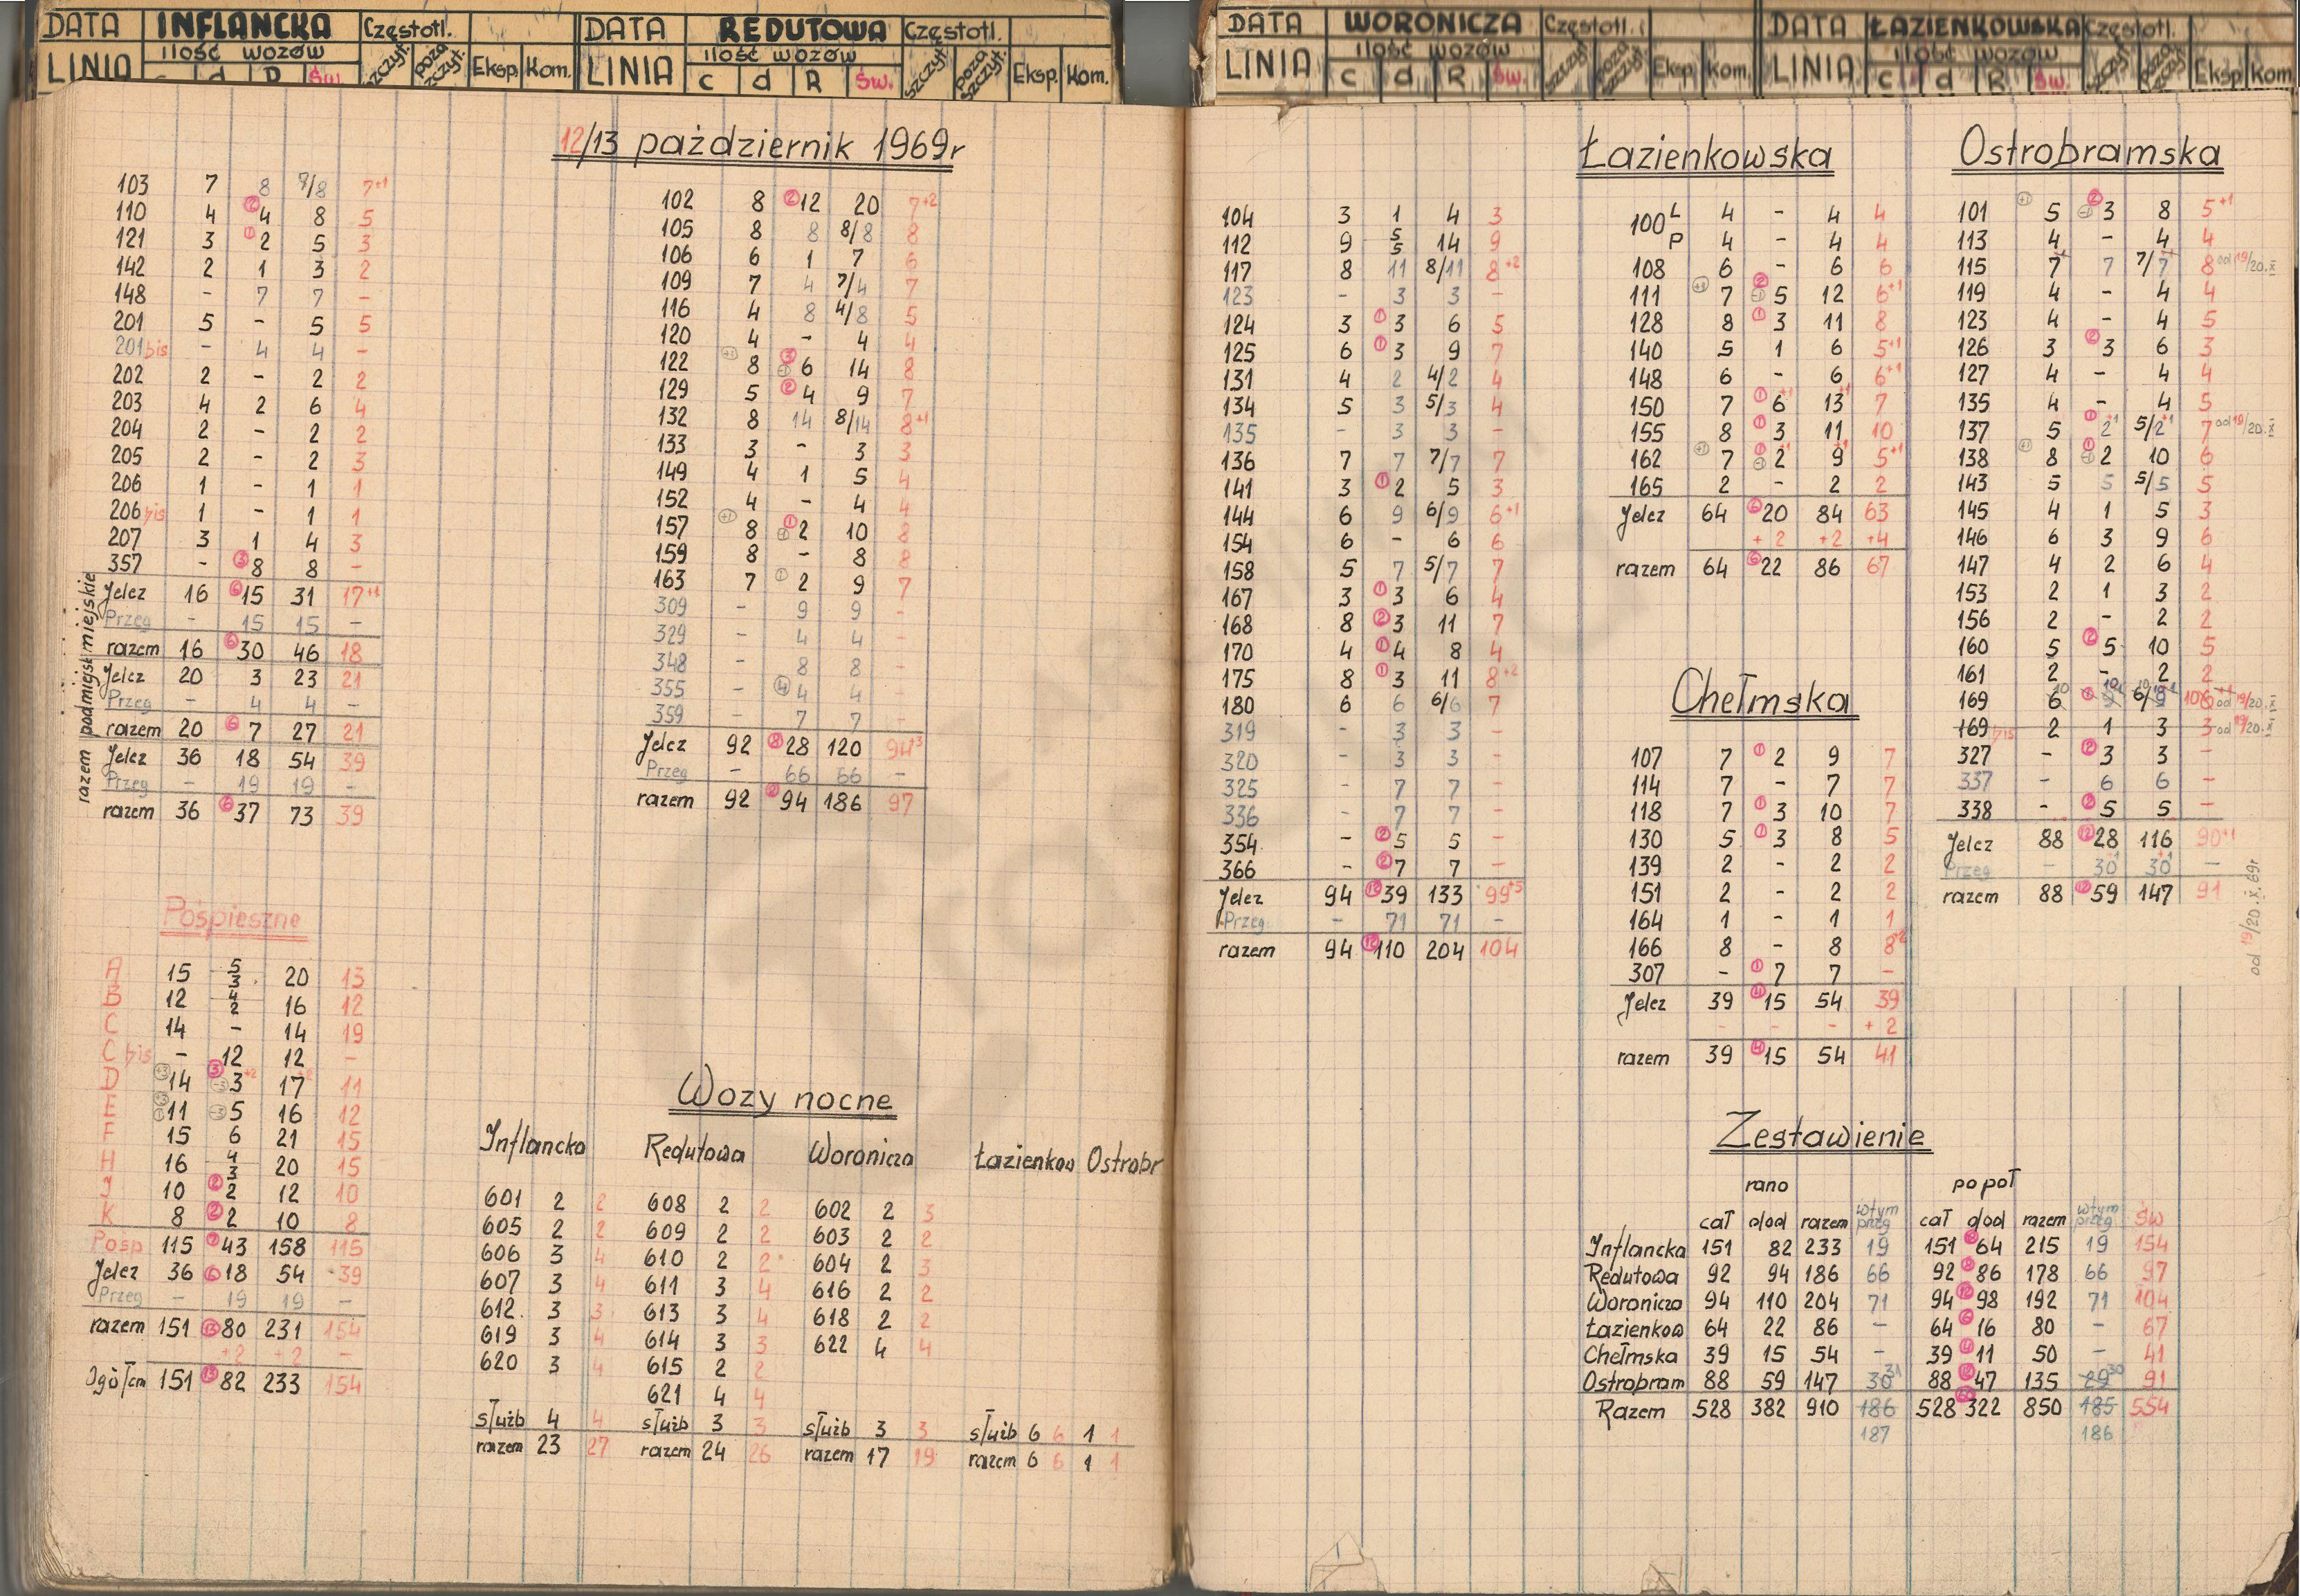 DATA INFLANCKA Częstotl.
LINIA ilość wozów szczyt. poza szczyt. Eksp. Kom.
d R Św.
DATA REDUTOWA Częstotl.
LINIA ilość wozów szczyt. poza szczyt. Eksp. Kom.
c d R Św.
DATA WORONICZA Częstotl.
LINIA ilość wozów szczyt. poza szczyt. Eksp. Kom.
c d R Św.
DATA ŁAZIENKOWSKA Częstotl.
LINIA ilość wozów szczyt. poza szczyt. Eksp. Kom.
c d R Św.
12/13 pażdziernik 1969r
103 7 8 7/8 7+1
110 4 ② 4 8 5
121 3 ① 2 5 3
142 2 1 3 2
148 - 7 7 -
201 5 - 5 5
201 bis - 4 4 -
202 2 - 2 2
203 4 2 6 4
204 2 - 2 2
205 2 - 2 3
206 1 - 1 1
206 bis 1 - 1 1
207 3 1 4 3
357 - ③ 8 8 -
miejskie
Jelcz 16 ⑥ 15 31 17+1
Przeg - 15 15 -
razem 16 ⑥ 30 46 18
podmiejsk
Jelcz 20 3 23 21
Przeg - 4 4 -
razem 20 ⑥ 7 27 21
razem
Jelcz 36 18 54 39
Przeg - 19 19 -
razem 36 ⑥ 37 73 39
Pośpieszne
A 15 5/3 20 13
B 12 4/2 16 12
C 14 - 14 19
C bis - 12 12 -
D +3 14 ③ -3 3+2 17+2 11
E 11 -3 5 16 12
F 15 6 21 15
H 16 4/3 20 15
J 10 ② 2 12 10
K 8 ② 2 10 8
Posp 115 ⑦ 43 158 115
Jelcz 36 ⑥ 18 54 39
Przeg - 19 19 -
razem 151 ⑬ 80 231 154
+2 +2 -
Ogółem 151 ⑬ 82 233 154
102 8 ② 12 20 7+2
105 8 8 8/8 8
106 6 1 7 6
109 7 4 7/4 7
116 4 8 4/8 5
120 4 - 4 4
122 +1 8 ③ -1 6 14 8
129 5 ② 4 9 7
132 8 14 8/14 8+1
133 3 - 3 3
149 4 1 5 4
152 4 - 4 4
157 +1 8 ① -1 2 10 8
159 8 - 8 8
163 7 ① 2 9 7
309 - 9 9 -
329 - 4 4 -
348 - 8 8 -
355 - ④ 4 4 -
359 - 7 7 -
Jelcz 92 ⑧ 28 120 94+3
Przeg - 66 66 -
razem 92 ⑧ 94 186 97
Wozy nocne
Inflancka
601 2 2
605 2 2
606 3 4
607 3 4
612 3 3
619 3 4
620 3 4
służb 4 4
razem 23 27
Redutowa
608 2 2
609 2 2
610 2 2
611 3 4
613 3 4
614 3 3
615 2 2
621 4 4
służb 3 3
razem 24 26
Woronicza
602 2 3
603 2 2
604 2 3
616 2 2
618 2 2
622 4 4
służb 3 3
razem 17 19
Łazienkow Ostrobr
służb 6 6 1 1
razem 6 6 1 1
104 3 1 4 3
112 9 5/5 14 9
117 8 11 8/11 8+2
123 - 3 3 -
124 3 ① 3 6 5
125 6 ① 3 9 7
131 4 2 4/2 4
134 5 3 5/3 4
135 - 3 3 -
136 7 7 7/7 7
141 3 ① 2 5 3
144 6 9 6/9 6+1
154 6 - 6 6
158 5 7 5/7 7
167 3 ① 3 6 4
168 8 ② 3 11 7
170 4 ① 4 8 4
175 8 ① 3 11 8+2
180 6 6 6/6 7
319 - 3 3 -
320 - 3 3 -
325 - 7 7 -
336 - 7 7 -
354 - ② 5 5 -
366 - ② 7 7 -
Jelcz 94 ⑫ 39 133 99+5
Przeg. - 71 71 -
razem 94 ⑫ 110 204 104
Łazienkowska
100 L 4 - 4 4
P 4 - 4 4
108 6 - 6 6
111 +1 7 ② -1 5 12 6+1
128 8 ① 3 11 8
140 5 1 6 5+1
148 6 - 6 6+1
150 7 ① 6+1 13+1 7
155 8 ① 3 11 10
162 +1 7 ① -1 2+1 9+1 5+1
165 2 - 2 2
Jelcz 64 ⑥ 20 84 63
+2 +2 +4
razem 64 ⑥ 22 86 67
Chełmska
107 7 ① 2 9 7
114 7 - 7 7
118 7 ① 3 10 7
130 5 ① 3 8 5
139 2 - 2 2
151 2 - 2 2
164 1 - 1 1
166 8 - 8 8²
307 - ① 7 7 -
Jelcz 39 ④ 15 54 39
- - - +2
razem 39 ④ 15 54 41
Ostrobramska
101 +1 5 ② -1 3 8 5+1
113 4 - 4 4
115 7 7 7/7 8 od 19/20.X
119 4 - 4 4
123 4 - 4 5
126 3 ② 3 6 3
127 4 - 4 4
135 4 - 4 5
137 5 ① 2+1 5/2+1 7 od 19/20.X
138 +1 8 ① -1 2 10 6
143 5 5 5/5 5
145 4 1 5 3
146 6 3 9 6
147 4 2 6 4
153 2 1 3 2
156 2 - 2 2
160 5 ② 5 10 5
161 2 - 2 2
169 6 10 od 19/20.X
169 bis 2 1 3 3 od 19/20.X
327 - ② 3 3 -
337 - 6 6 -
338 - ② 5 5 -
Jelcz 88 ⑫ 28 116 90+1
Przeg - 30+1 30+1 -
razem 88 ⑫ 59 147 91
od 19/20.X.69r
Zestawienie
rano popoł
cał dod razem wtym przeg cał dod razem wtym przeg św
Inflancka 151 82 233 19 151 64 215 19 154
Redutowa 92 94 186 66 92 ⑧ 86 178 66 97
Woronicza 94 110 204 71 94 ⑫ 98 192 71 104
Łazienkow 64 22 86 - 64 ⑥ 16 80 - 67
Chełmska 39 15 54 - 39 ④ 11 50 - 41
Ostrobram 88 59 147 30 31 88 ⑫ 47 135 29 30 91
Razem 528 382 910 186 528 322 850 185 554
187 186